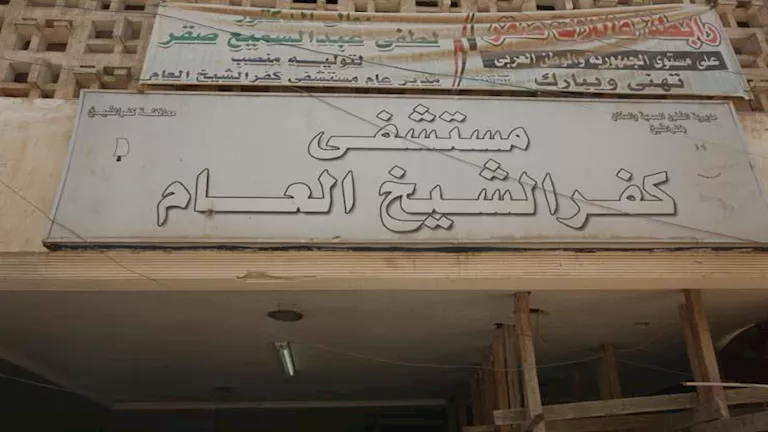 رابطة عائلات صقر
على مستوى الجمهورية والوطن العربى
تهنئ ويبارك
معالى الدكتور
لطفى عبدالسميع صقر
لتوليه منصب
مدير عام مستشفى كفرالشيخ العام
مديرية الشئون الصحية والسكان
بكفرالشيخ
محافظة كفرالشيخ
مستشفى
كفرالشيخ العام